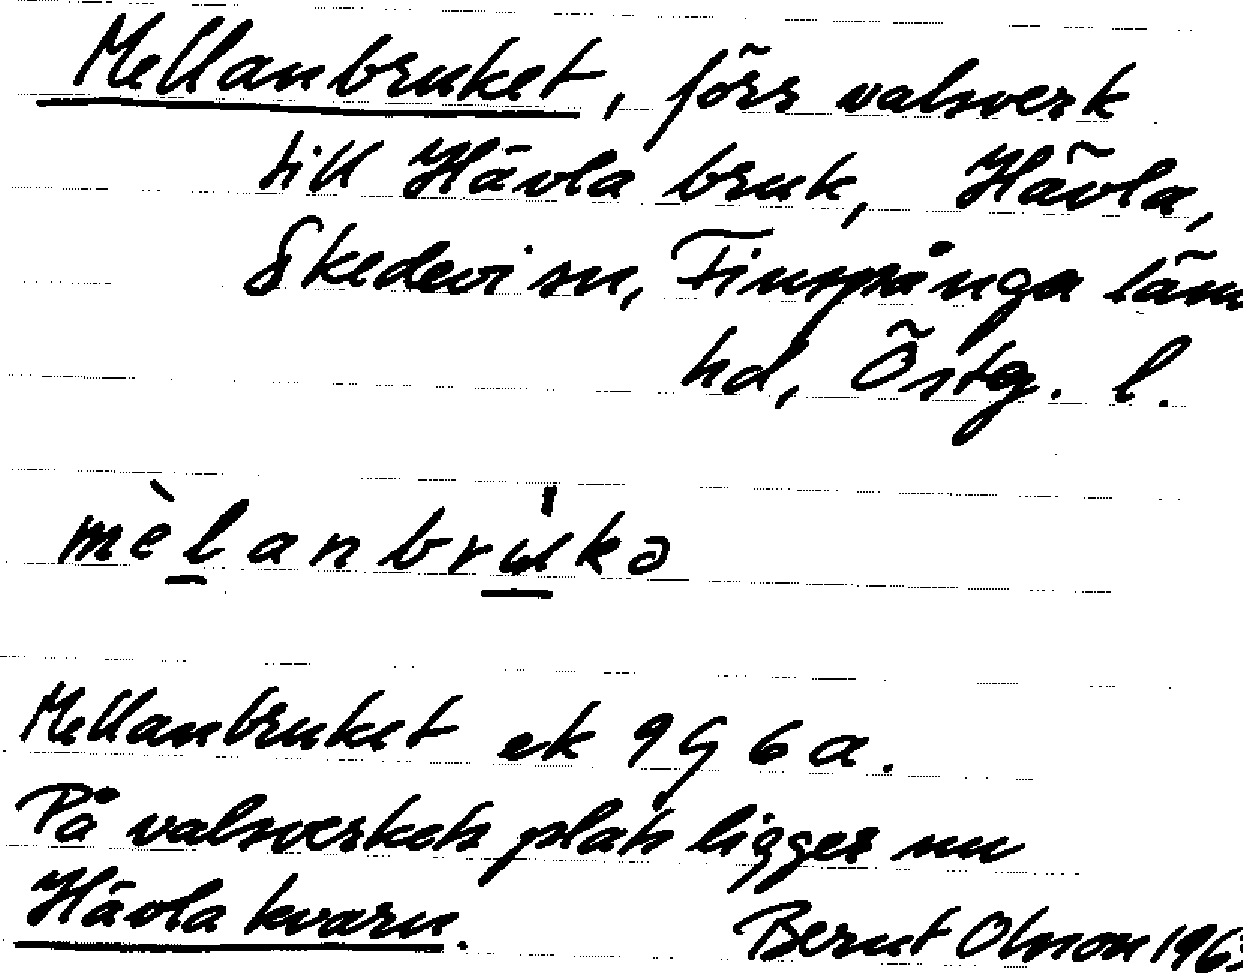 Mellanbruket, förr valsverk
till Hävla bruk, Hävla,
Skedevi sn, Finspånga läns
hd, Östg. l.
mèlanbrùkə
Mellanbruket ek 9G 6a.
På valsverkets plats ligger nu
Hävla kvarn.
Bernt Olsson 196